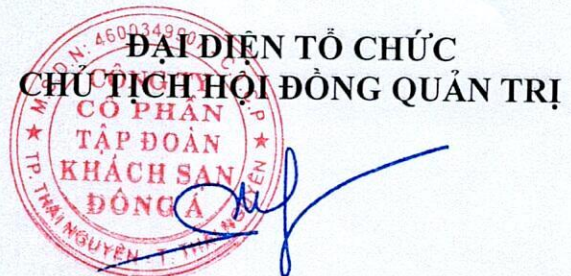 ĐẠI DIỆN TỔ CHỨC
CHỦ TỊCH HỘI ĐỒNG QUẢN TRỊ
CÔNG TY
CỔ PHẦN
TẬP ĐOÀN
KHÁCH SẠN
ĐÔNG Á
TP. THÁI NGUYÊN - T. THÁI NGUYÊN